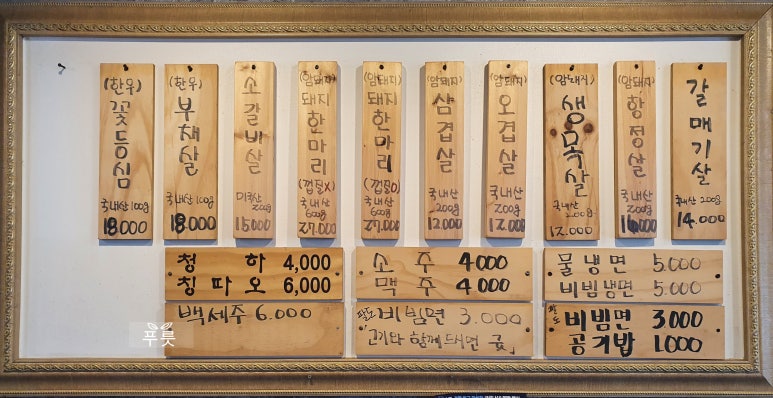 (한우)
꽃등심
국내산 100g
18.000
(한우)
부채살
국내산 100g
18.000
소갈비살
미국산
200g
15.000
(암돼지)
돼지한마리
(껍질X)
국내산
600g
27.000
(암돼지)
돼지한마리
(껍질O)
국내산
600g
27.000
(암돼지)
삼겹살
국내산
200g
12.000
오겹살
국내산
200g
12.000
(암돼지)
생목살
국내산
200g
12.000
(암돼지)
항정살
국내산
200g
14.000
갈매기살
국내산 200g
14.000
청하 4,000
칭따오 6,000
소주 4000
맥주 4000
물냉면 5.000
비빔냉면 5.000
백세주 6.000
팔도 비빔면 3.000
고기와 함께 드시면 굿
팔도 비빔면 3000
공기밥 1.000
푸룻